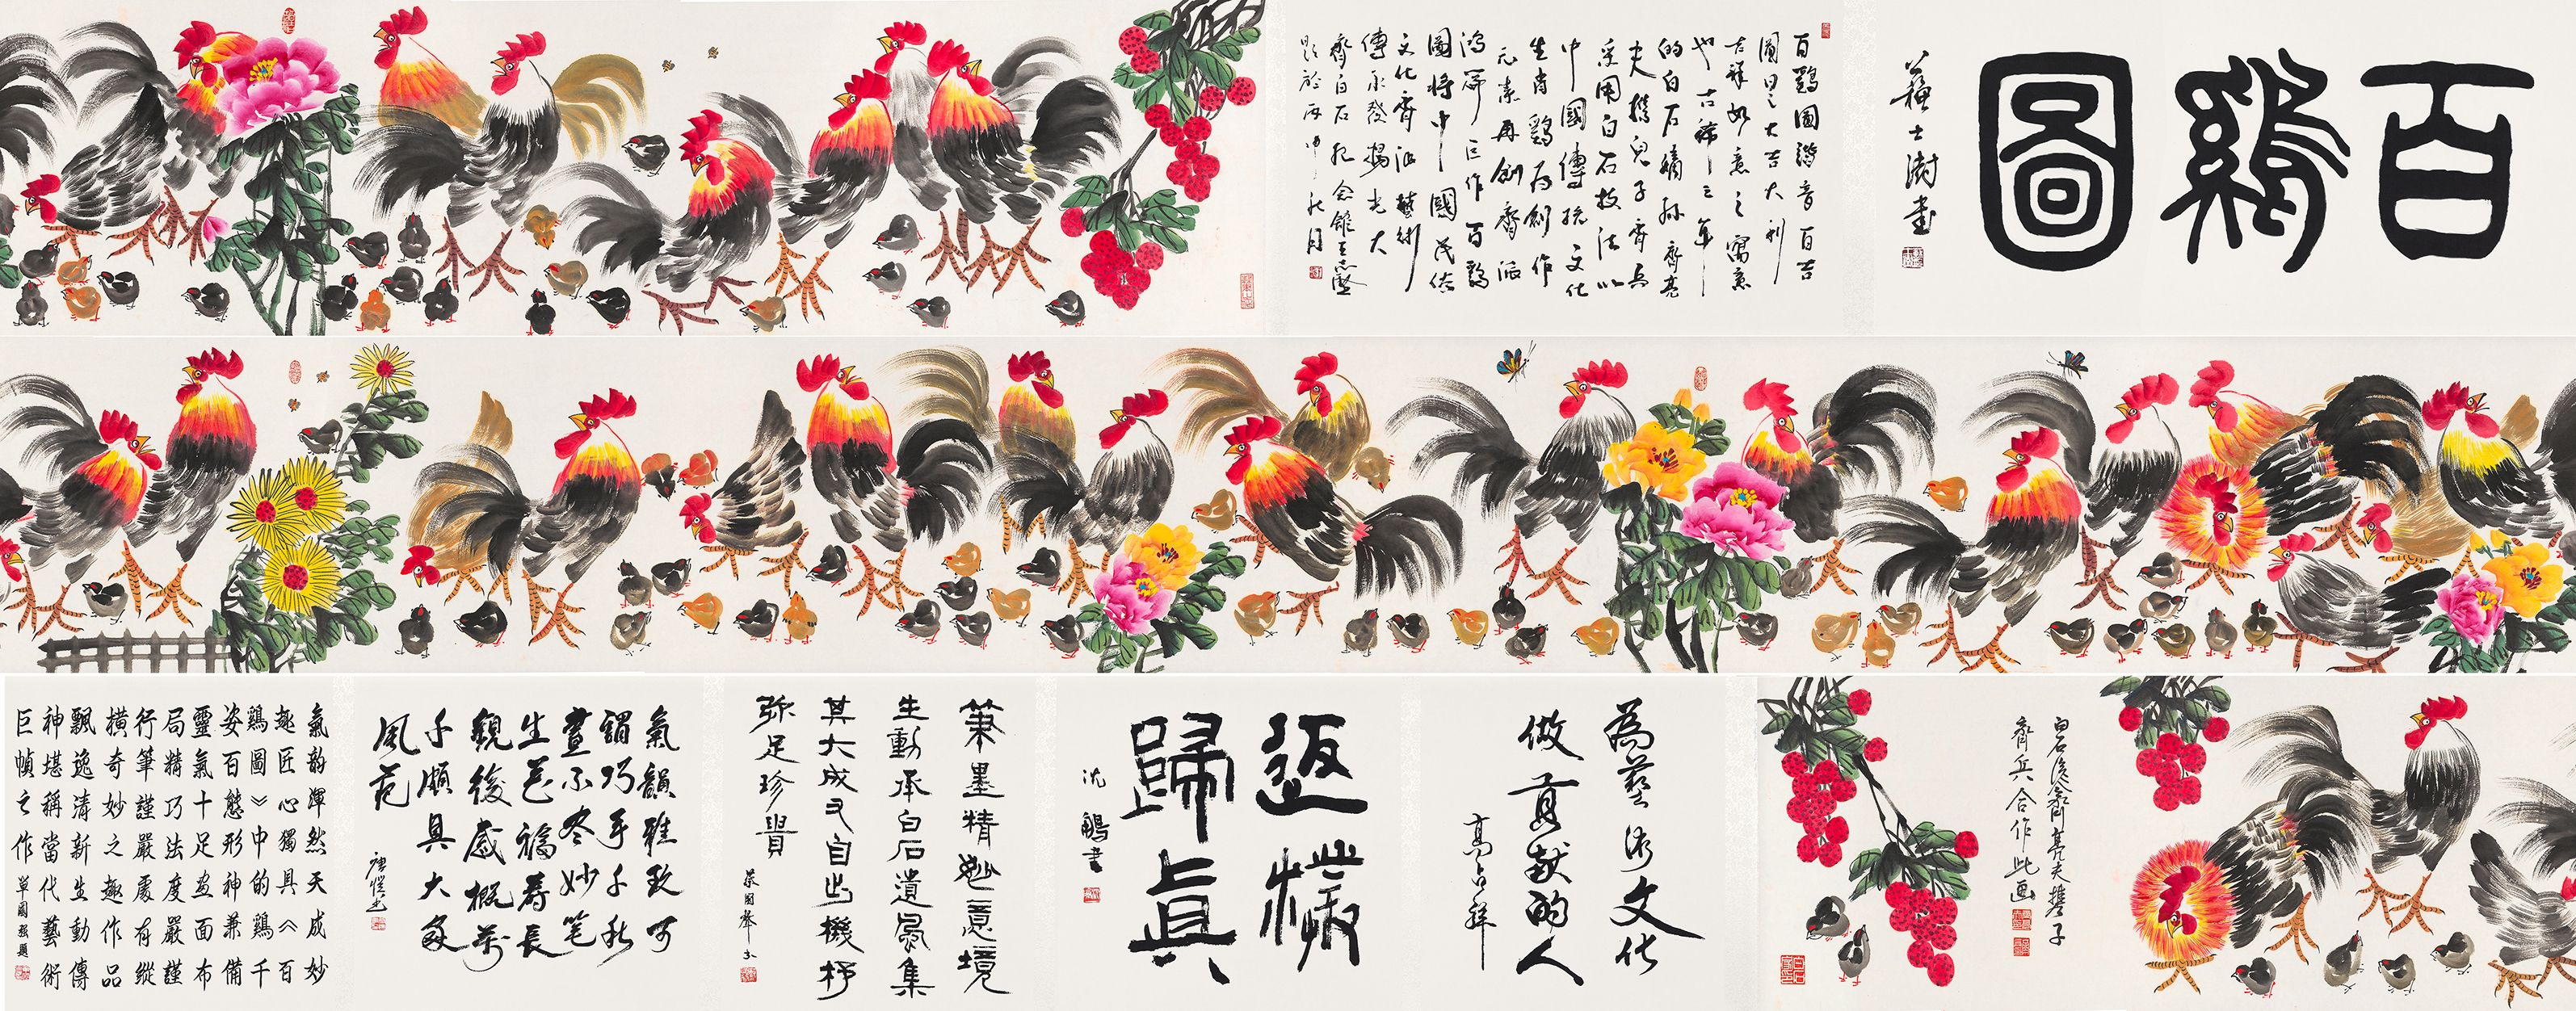 百鷄圖
蘇士澍書
百鷄圖諧音百吉
圖日之大吉大利
吉祥如意之寓意
也古稀之年
的白石嫡孫齊亮
夫攜兒子齊兵
采用白石技法以
中國傳統文化
生肖鷄爲創作
元素再創齊派
鴻篇巨作百鷄
圖將中國民俗
文化齊派藝術
傳承發揚光大
齊白石紀念館王志堅
題於丙申秋月
白石後裔齊亮夫攜子
齊兵合作此画
為藝術文化
做貢献的人
高占祥
返樸
歸真
沈鵬書
筆墨精妙意境
生動承白石遺風集
其大成又自出機杼
弥足珍貴
氣韻雅致可
謂巧手千秋
畫不盡妙笔
生花福壽長
觀後感概萬
千頗具大家
風范
唐愷書
氣韵渾然天成妙
趣匠心獨具《百
鷄圖》中的鷄千
姿百態形神兼備
靈氣十足画面布
局精巧法度嚴謹
行筆謹嚴處有縱
橫奇妙之趣作品
飄逸清新生動傳
神堪稱當代藝術
巨幀之作
單國強題